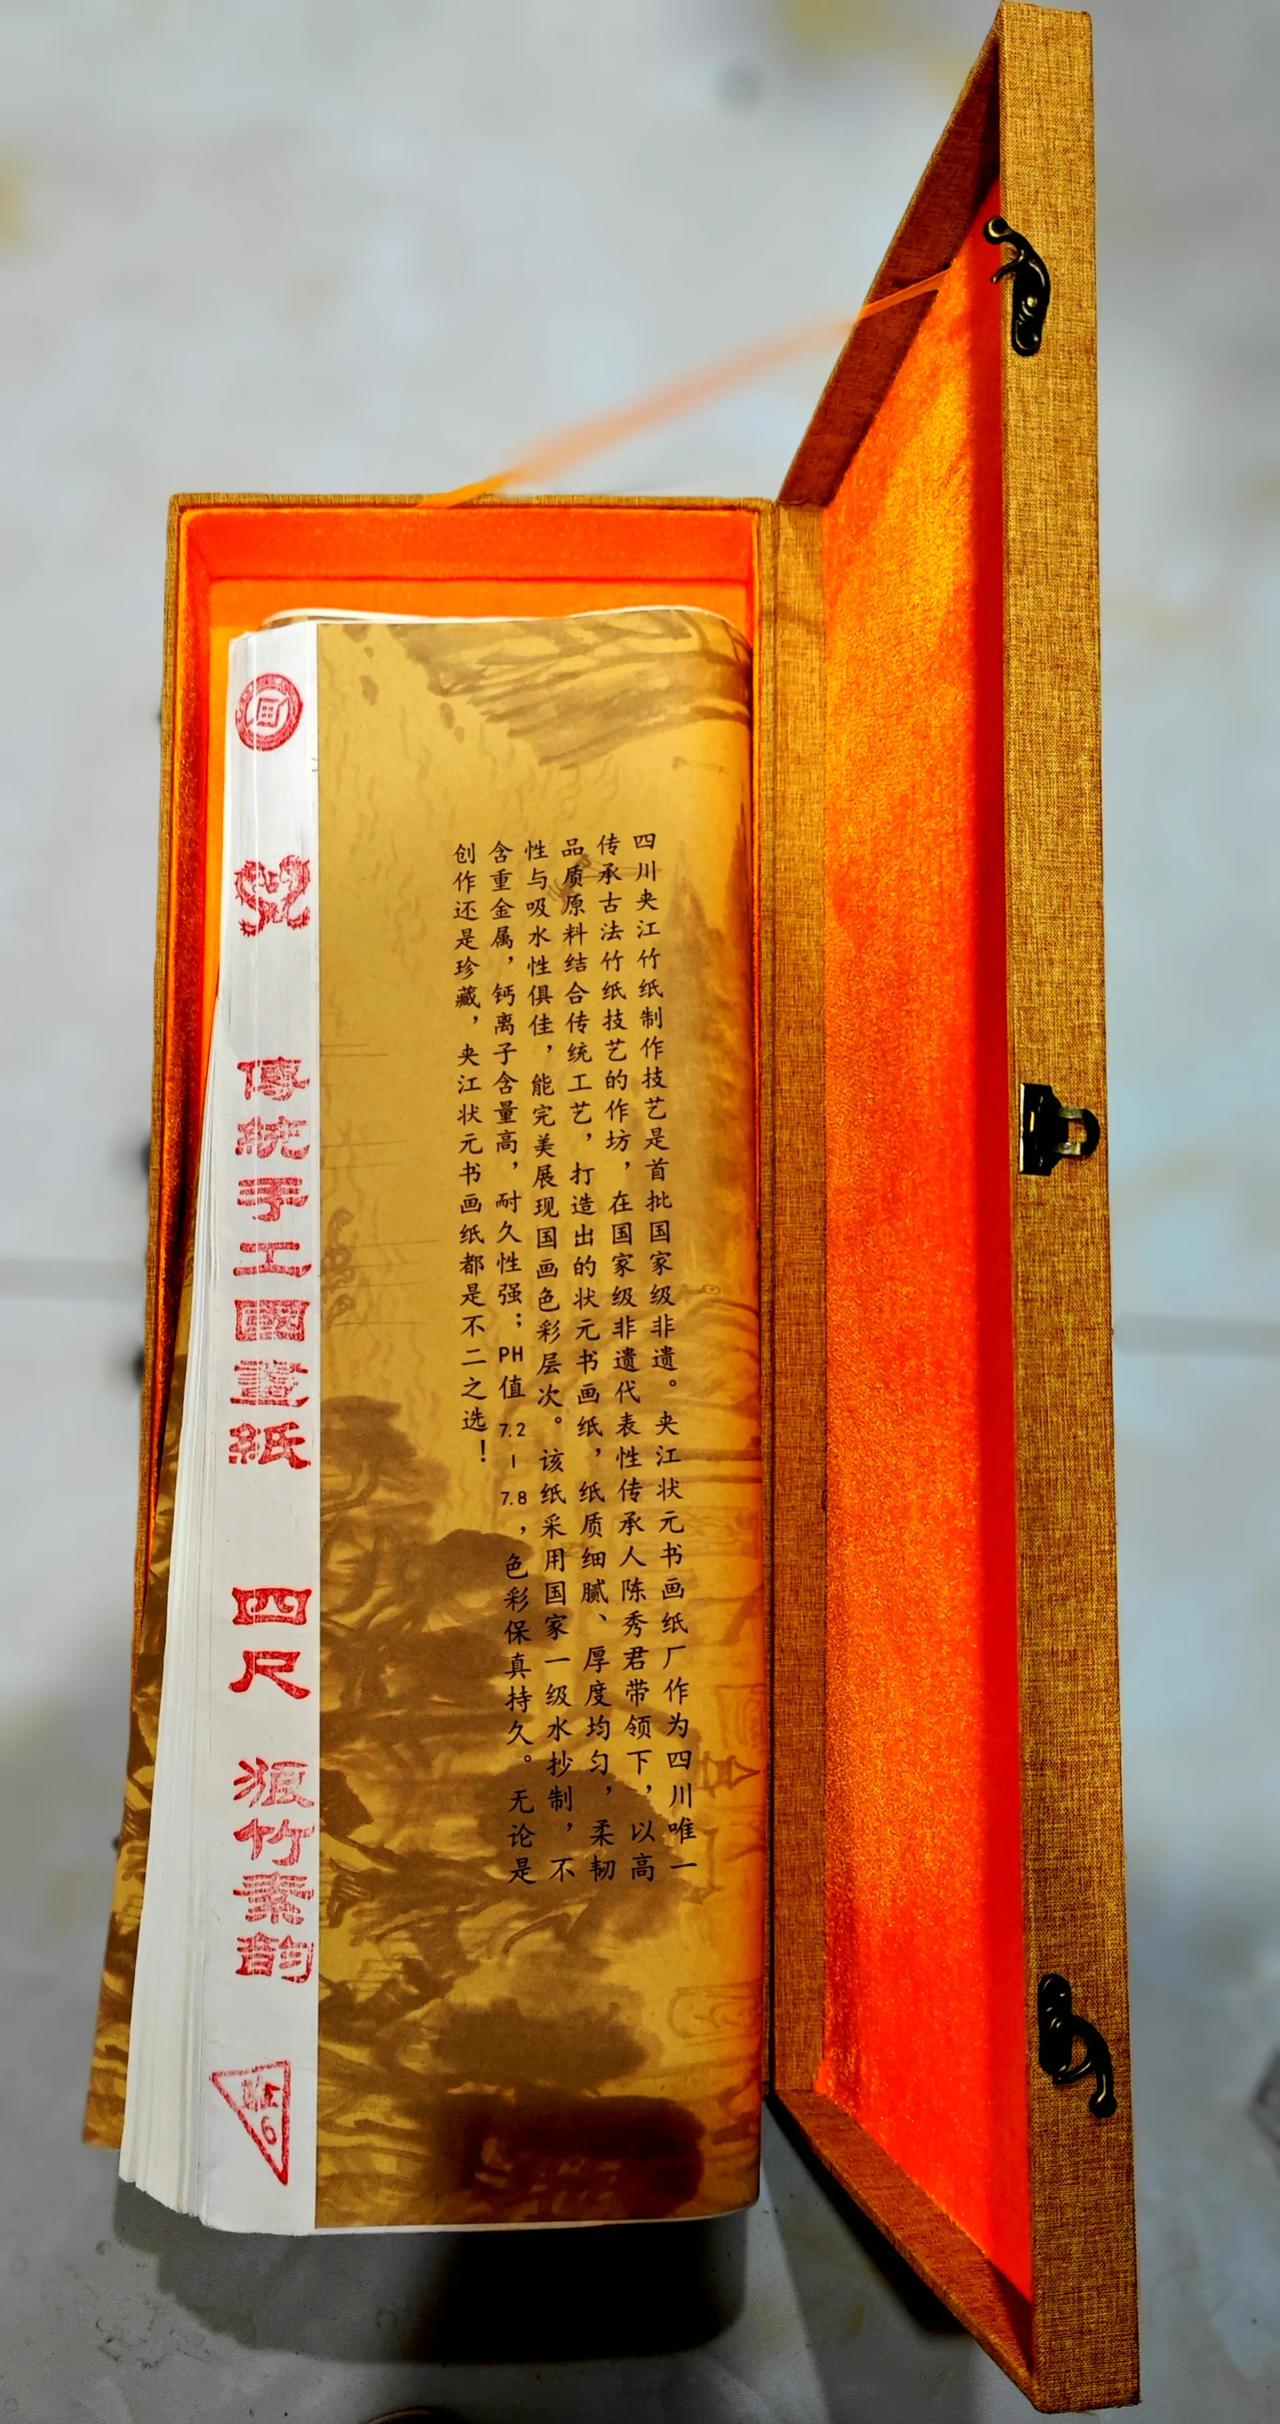 四川夹江竹纸制作技艺是首批国家级非遗。夹江状元书画纸厂作为四川唯一
传承古法竹纸技艺的作坊，在国家级非遗代表性传承人陈秀君带领下，以高
品质原料结合传统工艺，打造出的状元书画纸，纸质细腻、厚度均匀，柔韧
性与吸水性俱佳，能完美展现国画色彩层次。该纸采用国家一级水抄制，不
含重金属，钙离子含量高，耐久性强；PH值7.2-7.8，色彩保真持久。无论是
创作还是珍藏，夹江状元书画纸都是不二之选！
傳統手工國畫紙 四尺 竹素韵